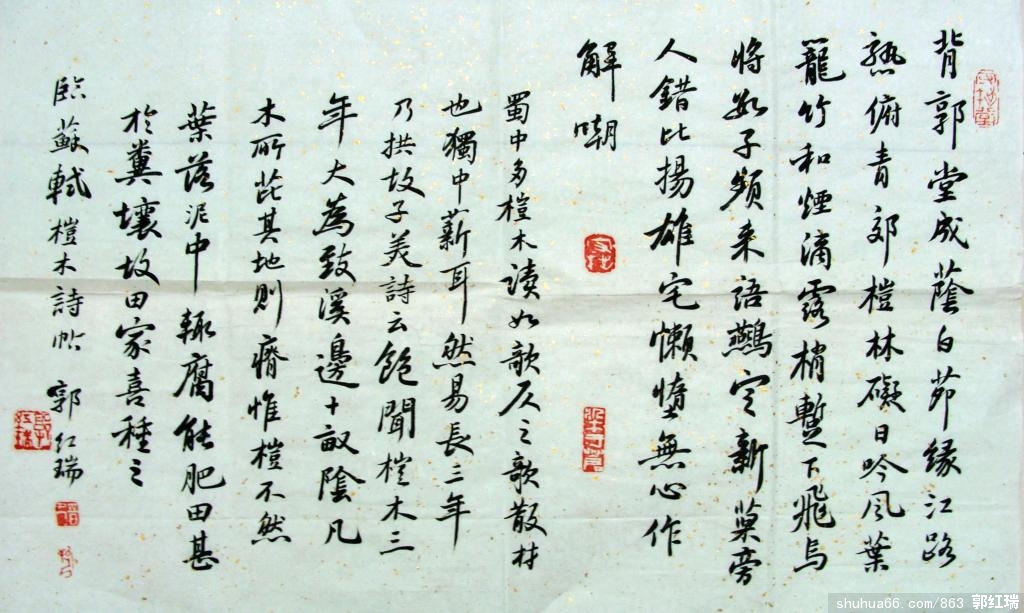 背郭堂成蔭白茆緣江路
熟俯青郊榿林礙日吟風葉
籠竹和煙滴露梢暫下飛烏
將數子頻来語鷰定新巢旁
人錯比揚雄宅懶惰無心作
解嘲
蜀中多榿木讀如欹仄之欹散材
也獨中薪耳然易長三年
乃拱故子美詩云飽聞榿木三
年大為致溪邊十畝陰凡
木所芘其地則瘠惟榿不然
葉落泥中輒腐能肥田甚
於糞壤故田家喜種之
臨蘇軾榿木詩帖 郭红瑞
shuhua66.com/863 郭红瑞